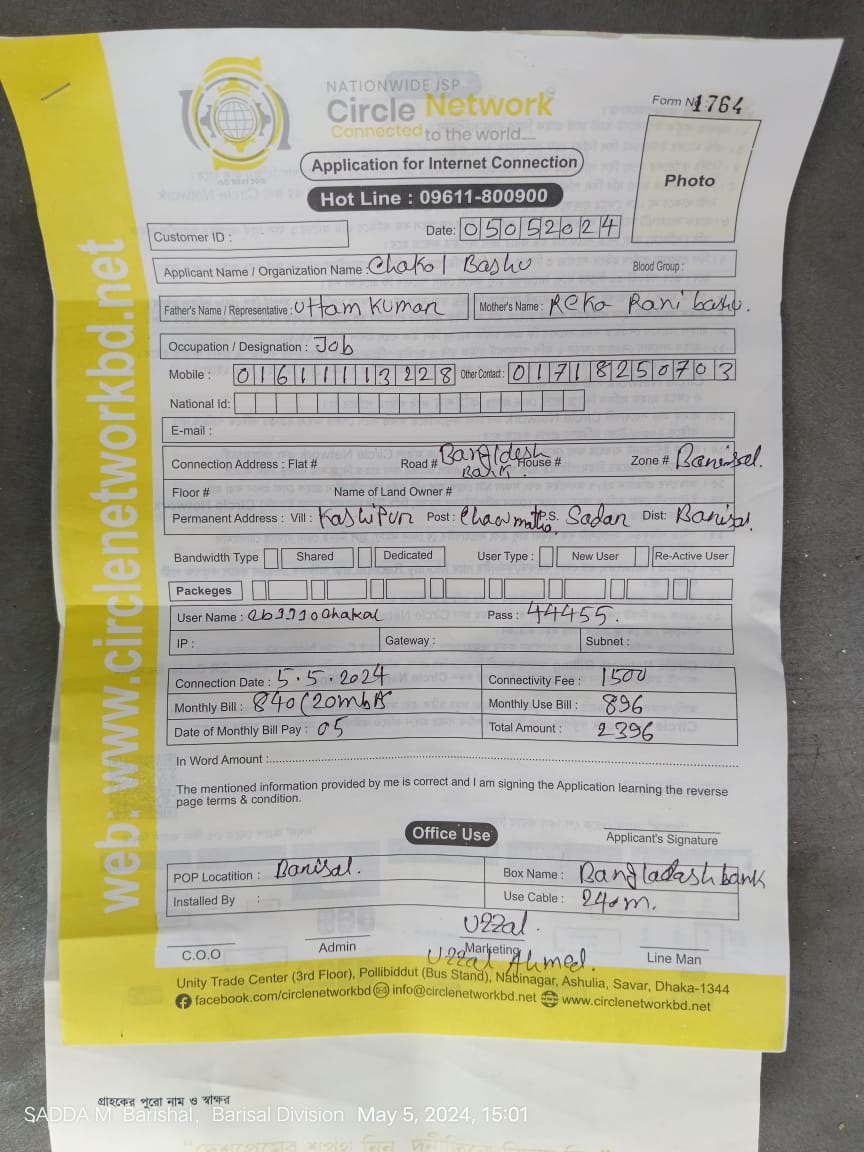 NATIONWIDE ISP
Circle Network
Connected to the world.....
ISO 9001:2015
Form No: 1764
Application for Internet Connection
Photo
Hot Line : 09611-800900
Customer ID :
Date: 05052024
Applicant Name / Organization Name : Chakol Bashu Blood Group :
Father's Name / Representative : Uttam Kumar Mother's Name : Reka Rani bashu.
Occupation / Designation : Job
Mobile : 01611113228 Other Contact : 01718250703
National Id:
E-mail :
Connection Address : Flat # Road # Bangldesh Bank. House # Zone # Barisal.
Floor # Name of Land Owner #
Permanent Address : Vill : Kashipur Post : Chawmatha P.S. Sadar Dist: Barisal.
Bandwidth Type Shared Dedicated User Type : New User Re-Active User
Packeges
User Name : Pass : 44455.
IP : Gateway : Subnet :
Connection Date : 5.5.2024 Connectivity Fee : 1500
Monthly Bill : 840 (20mb Monthly Use Bill : 896
Date of Monthly Bill Pay : 05 Total Amount : 2396
In Word Amount :
The mentioned information provided by me is correct and I am signing the Application learning the reverse
page terms & condition.
Office Use
Applicant's Signature
POP Locatition : Barisal. Box Name : Bangladash bank
Installed By : Use Cable : 240m.
Uzzal.
C.O.O Admin Marketing Line Man
Uzzal Ahmed.
Unity Trade Center (3rd Floor), Pollibiddut (Bus Stand), Nabinagar, Ashulia, Savar, Dhaka-1344
facebook.com/circlenetworkbd info@circlenetworkbd.net www.circlenetworkbd.net
web: www.circlenetworkbd.net
গ্রাহকের পুরো নাম ও স্বাক্ষর
SADDA M Barishal, Barisal Division May 5, 2024, 15:01